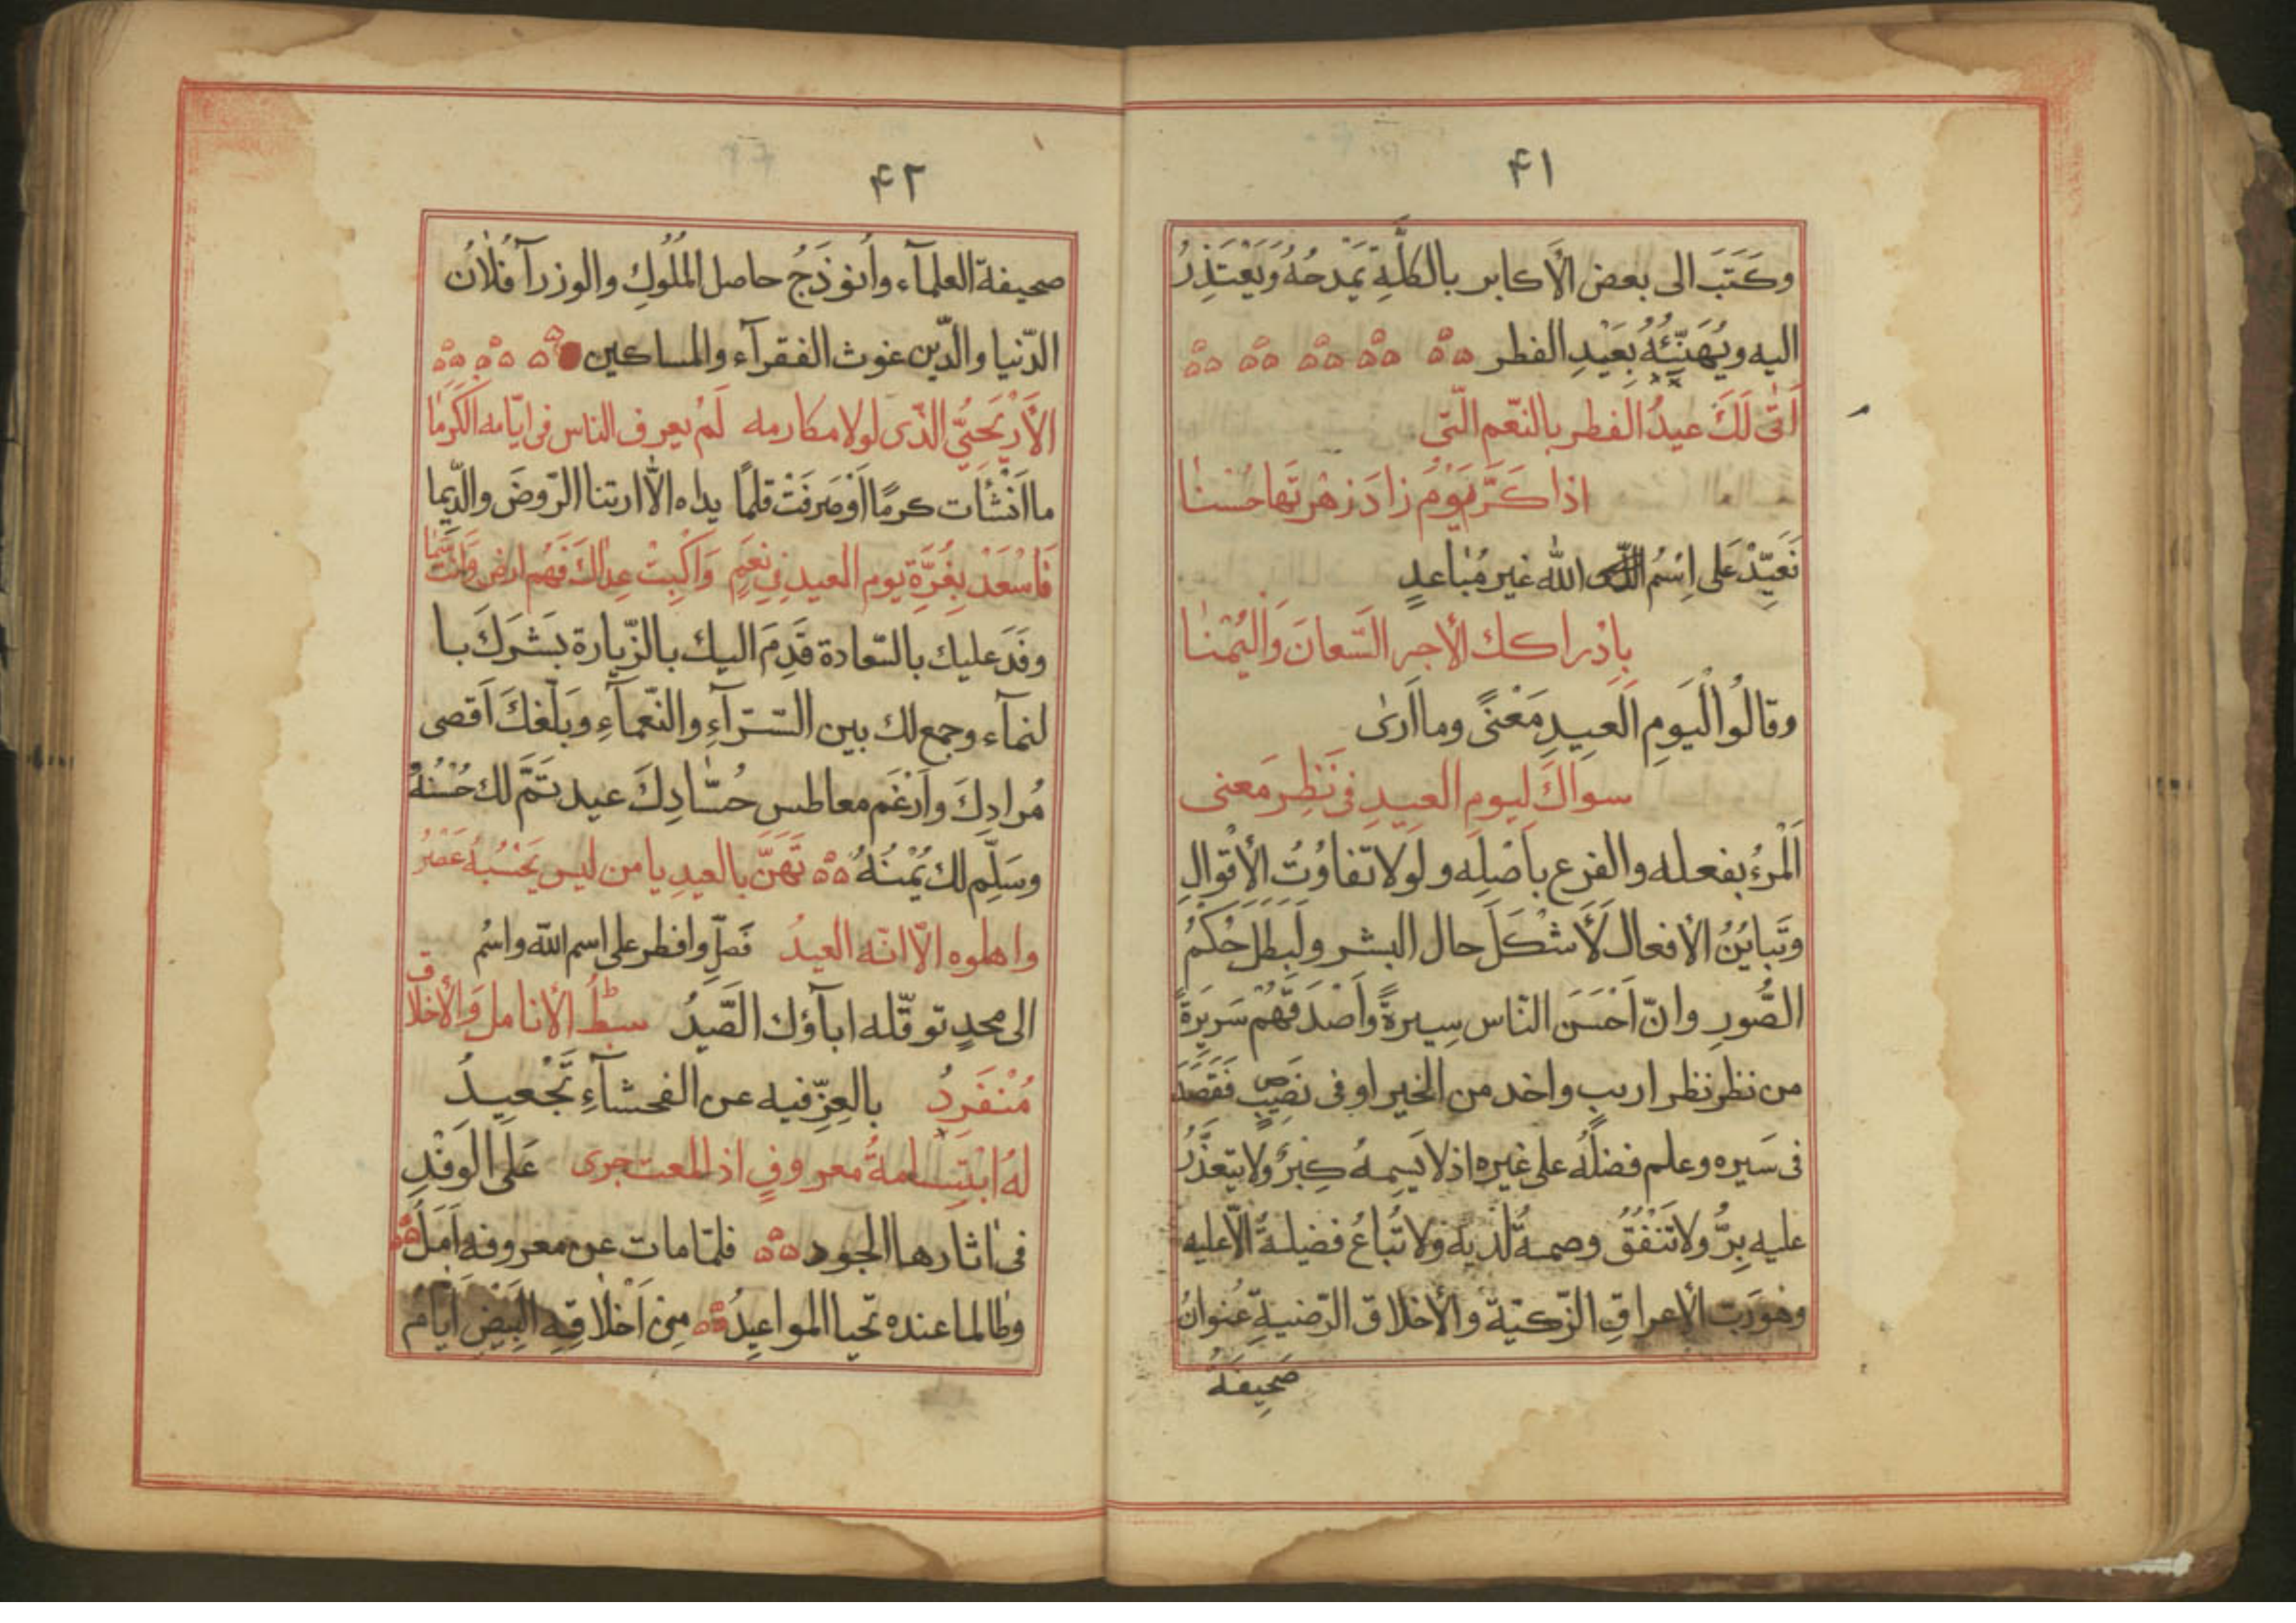 ۴۱
وكَتَبَ الى بعض الأكابر بالكلّة يَمْدحُهُ وَيَعْتَذِرُ
اليه ويُهَنِّيُهُ بِعَيْدِ الفطر
اَتى لَكَ عيدُ الفطر بالنّعَم الّتى
اذا كَرَّ يَوْمٌ زادَ زهْرتَها حُسْنا
نَعَيِّدْ عَلى اِسْمُ الله غير مُبٰاعدٍ
بِادْراكك الأجر السّعانَ وَاليُمْنا
وقالُوا الْيَومِ العيدِ مَعْنىً وما اَرىٰ
سواكَ ليوم العيدِ فى نَظِر مَعنى
اَلْمرُءُ بفعله والفرع باَصْلِه ولَولا تفاوُتُ الأقْوالِ
وتَبايُنُ الأفعال لَأشْكَلَ حال البشر ولَبَطلَ حُكْمُ
الصُّورِ وانّ اَحْسَنَ النّاس سِيرةً وأَصْدَقَهُمْ سَرِيَرةً
من نظر نظر اريبٍ واخد من الخير اوفى نَصِيبٍ فَقَصَدَ
فى سَيره وعلم فضلُه على غيره اذ لا يَسِمهُ كِبْرٌ ولا يتعذَّرُ
عليه بِرٌّ ولا تَنْفُقُ وصمةٌ لَديْهِ ولا تُباعُ فضيلةٌ الّا عليه
وهو رَبّ الأعراقِ الزّكيّة والأخلاق الرّضيةِ عُنوانُ
صَحِيفَةُ
۴۲
صحيفة العلمآء واُنموذَجُ حاصل المُلُوكِ والوزرآ فُلٰانُ
الدّنيا والدّين غوث الفقرآء والمساكين
الأَرْيَحِيُّ الذّى لولا مكارمه لَمْ يعرف الناس فى ايّامه الكَرَما
ما اَنْشَأت كرمًا اَوْ صَرفَتْ قلمًا يداه الّا ارتنا الرّوضَ والدِّيما
فَاسْعَدْ بِغُرَّةِ يوم العيد فى نِعَمٍ وَاكْبِتْ عِداكَ فَهُم ارض وَانْتَ سَما
وفَدَ عليك بالسّعادة قَدِمَ اليك بالزّيارة بَشرَكَ با
لنمآء وجمع لك بين السّرّآءِ والنّعمآءِ وبَلّغكَ اَقصى
مُرادِكَ واَرْغَم معاطس حُسّٰادِكَ عيد تَمَّ لك حُسْنُهُ
وسَلِّم لك يُمْنُهُ تَهَنَّ بالعيدِ يا من ليس يَحْسُبهُ عَصْرُ
واهلوه الّا انّه العيدُ فَصَلِّ وافطر على اسم الله واسْمُ
الى مجدٍ توقّله ابآؤك الصّيدُ سبطُ الأنامل وَالأخلاق
مُنْفَرِدٌ بالعِزّ فيه عن الفحشآءِ تَجْعيِدُ
لهُ ابْتِسٰامةُ معروفٍ اذ المعت جرى عَلَى الوَفْدِ
فى اٰثارها الجود فلمّا مات عن معروفه اَمَلٌ
وطٰالما عنده تحيا المواعيِدُ مِن اَخْلاقِهِ البِيَضِ اَيّامُ